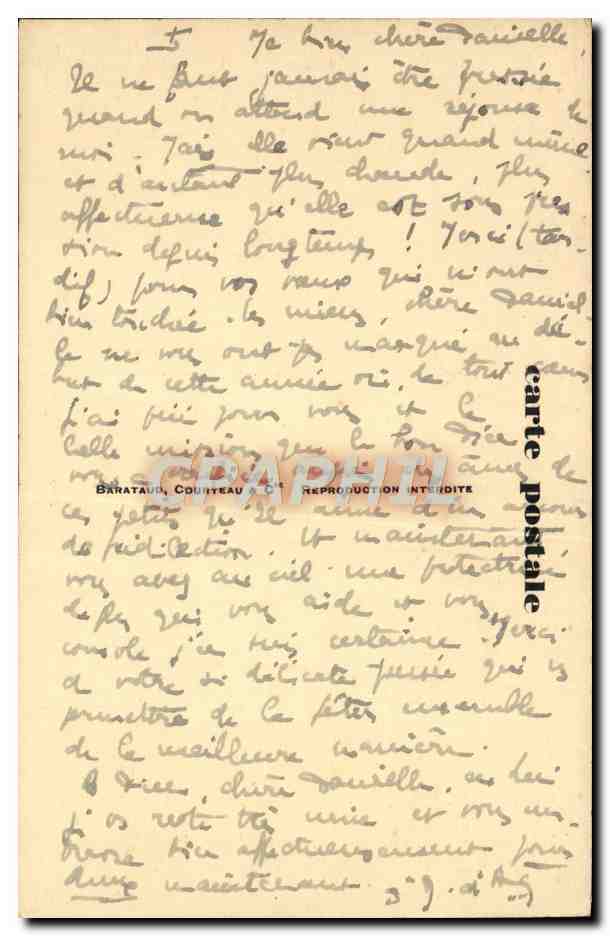 Ma bien chère Danielle,
Il ne faut jamais être pressée
quand on attend une réponse de
moi. Mais elle vient quand même
et d'autant plus chaude, plus
affectueuse qu'elle est sous pres
sion depuis longtemps ! Merci (tar-
dif) pour vos vœux qui m'ont
bien touchée. Les miens, chère Daniel-
le ne vous ont pas manqué, au dé-
but de cette année où, de tout cœur
j'ai prié pour vous et la
belle mission que le bon Dieu
vous âmes de
ces petits qu'Il aime d'un amour
de prédilection. Et maintenant
vous avez au ciel une protectrice
de plus qui vous aide et vous
console j'en suis certaine. Merci
de votre si délicate pensée qui va
permettre de la fêter ensemble
de la meilleure manière.
A Dieu, chère Danielle, en Lui
je vous reste très unie et vous em-
brasse bien affectueusement pour
deux maintenant.
carte postale
BARATAUD, COURTEAU & Cie REPRODUCTION INTERDITE
CPAPHIL